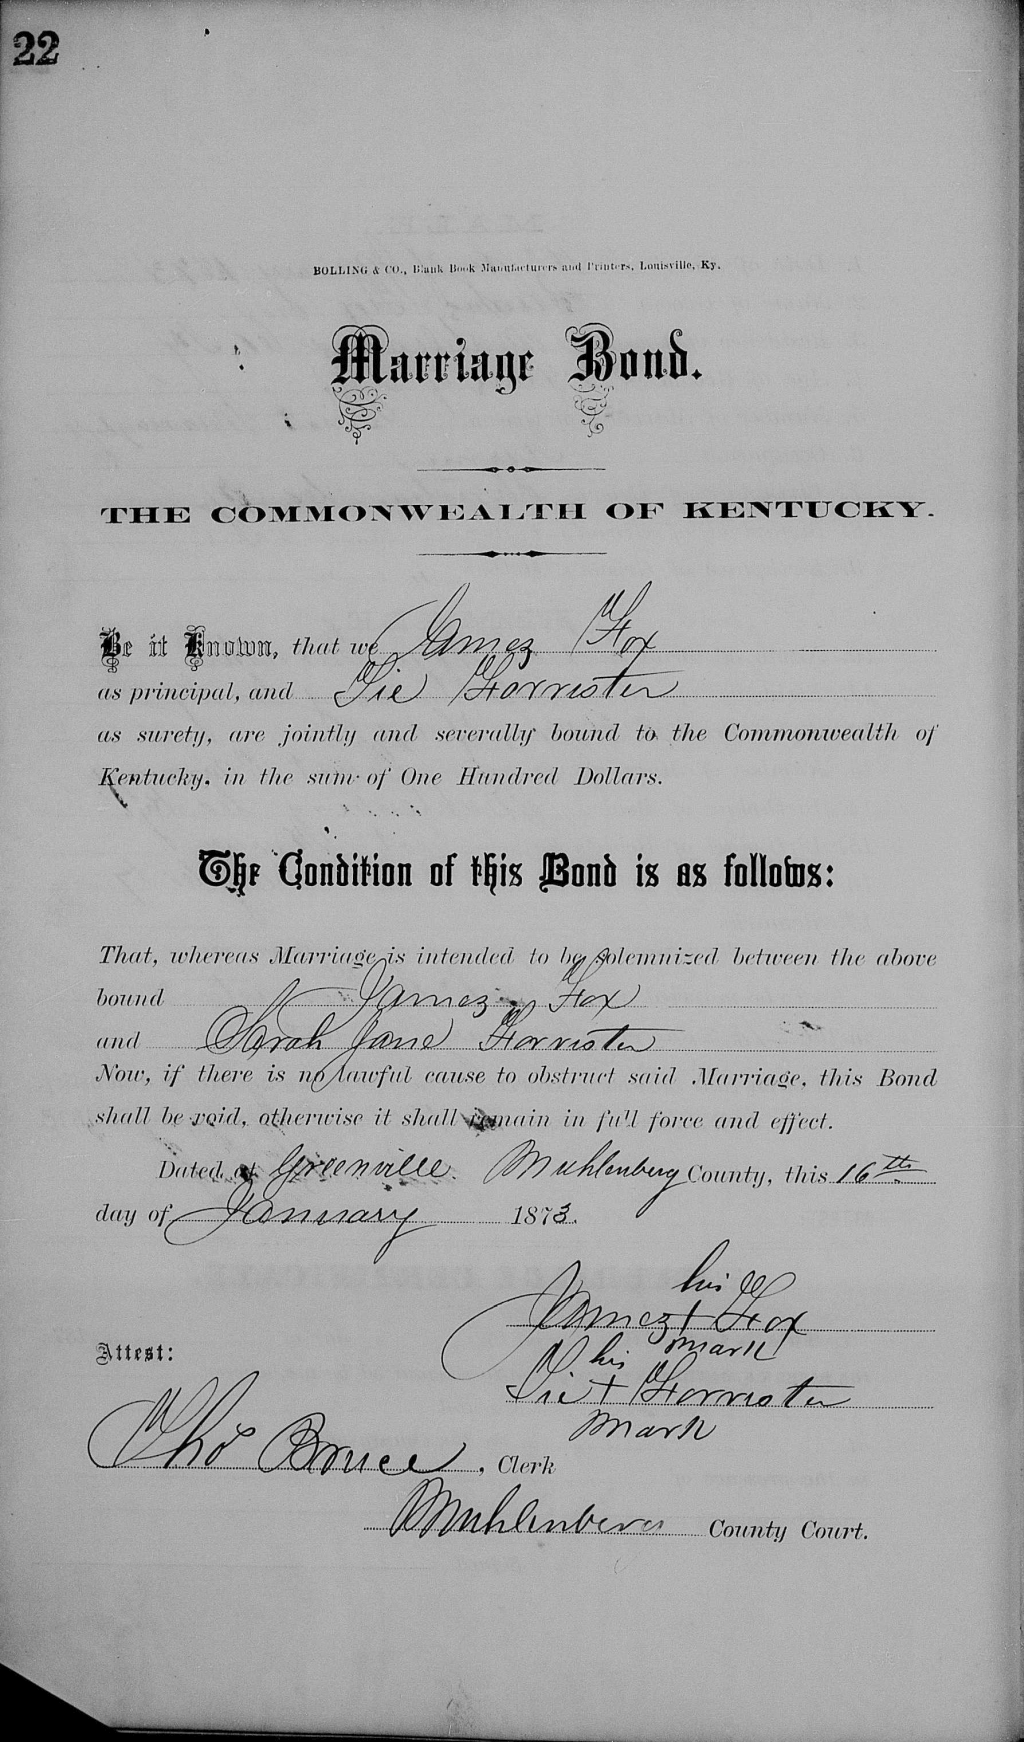 22
BOLLING & CO., Blank Book Manufacturers and Printers, Louisville, Ky.
Marriage Bond.
THE COMMONWEALTH OF KENTUCKY.
Be it Known, that we James Fox
as principal, and Sie Forrister
as surety, are jointly and severally bound to the Commonwealth of
Kentucky, in the sum of One Hundred Dollars.
The Condition of this Bond is as follows:
That, whereas Marriage is intended to be solemnized between the above
bound James Fox
and Sarah Jane Forrister
Now, if there is no lawful cause to obstruct said Marriage, this Bond
shall be void, otherwise it shall remain in full force and effect.
Dated at Greenville Muhlenberg County, this 16th
day of January 1873.
his
James + Fox
mark
Attest:
his
Sie + Forrister
mark
Tho Bruce, Clerk
Muhlenberg County Court.